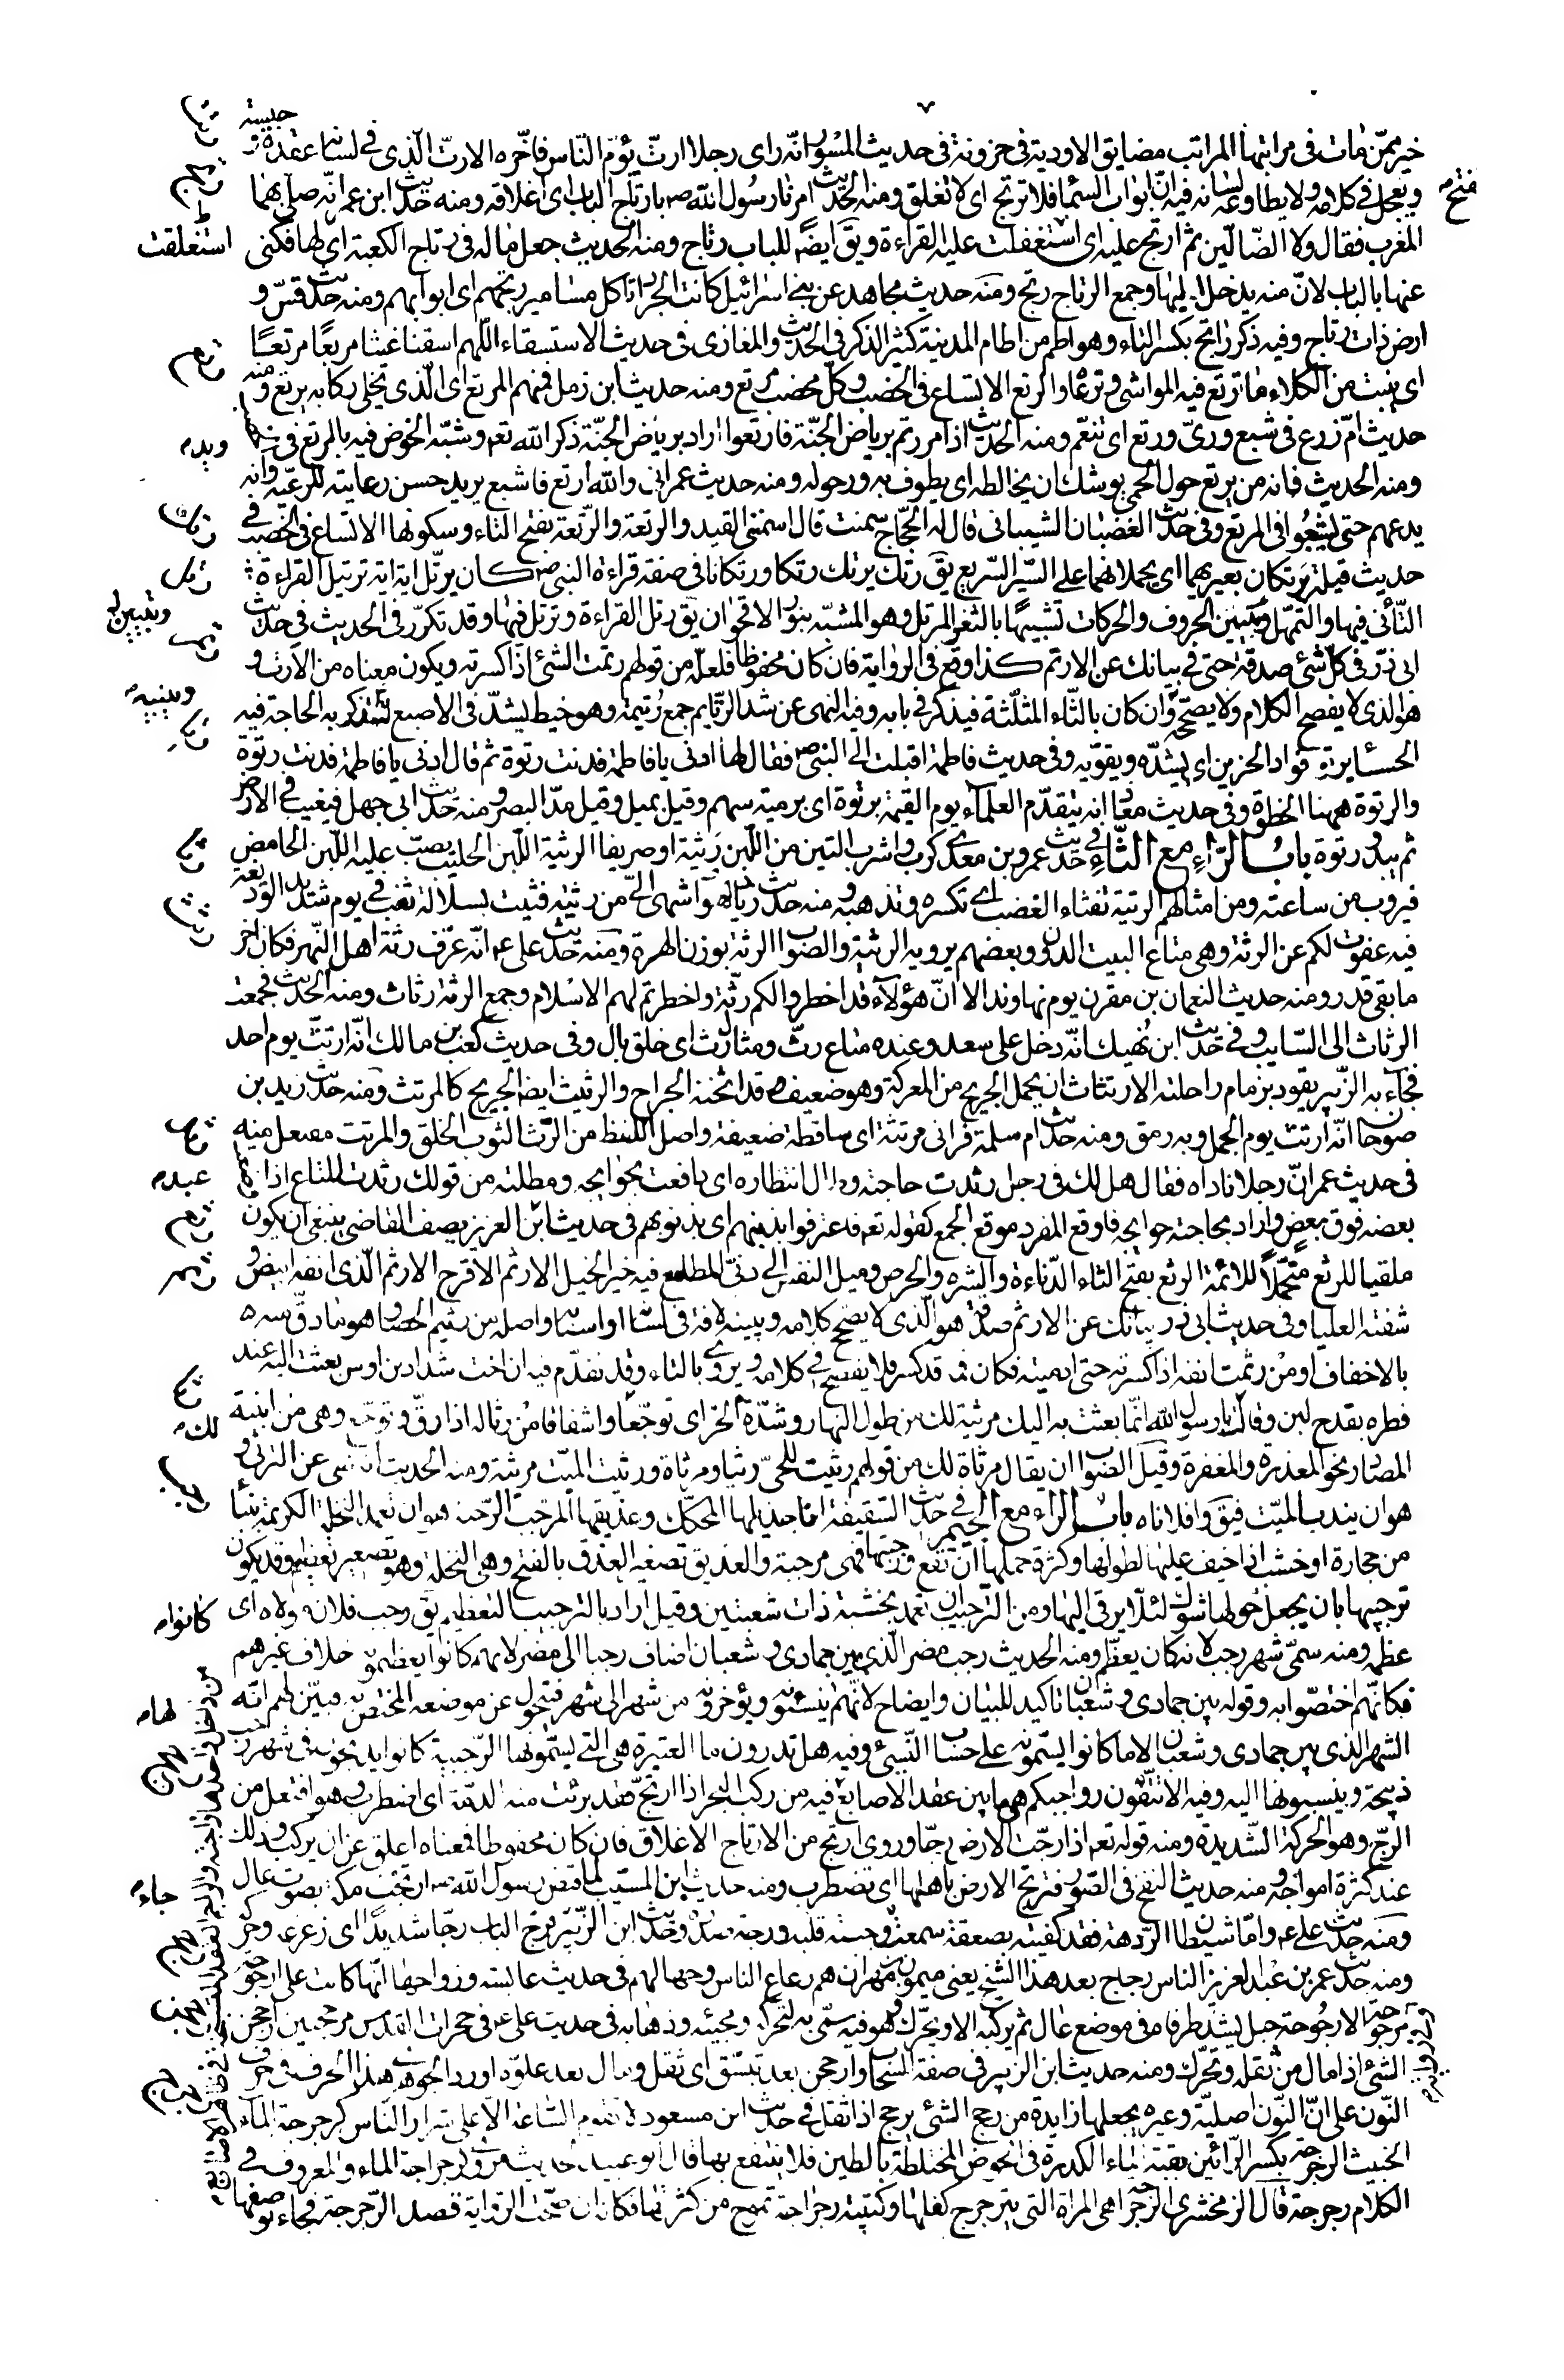 ٧
خير ممّن مات فى مراتبها المراتب مضايق الاودية فى حزونة فى حديث المسور انّه راى رجلا ارتّ يؤم النّاس فاخّره الارتّ الّذى فى لسانه عقدة و حبسة
و يعجل فى كلامه ولا يطاوعه لسانه فيه انّ ابواب السّماء فلا ترتج اى لا تغلق ومنه الحديث امرنا رسول الله ص بارتاج الباب اى اغلاقه ومنه حديث ابن عمر انّه صلى بهم
المغرب فقال ولا الضّالّين ثم ارتج عليه اى استغلقت عليه القراءة ويق ايضًا للباب رتاج ومنه الحديث جعل ماله فى رتاج الكعبة اى لها فكنى
عنها بالباب لانّ منه يدخل اليها وجمع الرتاج رتج ومنه حديث مجاهد عن بنى اسرائيل كانت الجراد تاكل مسامير رتجهم اى ابوابهم ومنه حديث قسّ و
ارض ذات رتاج وفيه ذكر راتج بكسر التاء وهو اطم من اطام المدينة كثير الذكر فى الحديث والمغازى فى حديث الاستسقاء اللّهم اسقنا غيثا مريعًا مرتعًا
اى ينبت من الكلاء ما ترتع فيه المواشى وترعاه والرتع الاتساع فى الخصب وكلّ مخصب مرتع ومنه حديث ابن زمل فمنهم المرتع اى الّذى يخلى ركابه يرتع ومنه
حديث امّ زرع فى شبع وريّ ورتع اى تنعّم ومنه الحديث اذا مررتم برياض الجنّة فارتعوا اراد برياض الجنّة ذكر الله تع وشبّه الخوض فيه بالرتع فى
ومنه الحديث فانه من يرتع حول الحمى يوشك ان يخالطه اى يطوف به ويدور حوله ومنه حديث عمر انى والله ارتع فاشبع يريد حسن رعايته للرعيّة وانه
يدعهم حتى يشبعوا فى المرتع وفى حديث الغضبان الشيبانى قال له الحجّاج سمنت قال اسمننى القيد والرتعة والرّتعة بفتح التاء وسكونها الاتساع فى الخصب فى
حديث قيلة يرتكان بعيريهما اى يحملانهما على السّير السّريع يق رتك يرتك رتكا ورتكانا فى صفة قراءة النبى ص كان يرتّل اية اية ترتيل القراءة
التّأنّى فيها والتّمهل وتبيين الحروف والحركات تشبيهًا بالثغر المرتل وهو المشبّه بنور الاقحوان يق رتل القراءة وترتل فيها وقد تكرّر فى الحديث فى حديث
ابى ذرّ فى كلّ شئ صدقة حتى فى بيانك عن الارتم كذا وقع فى الرواية فان كان محفوظا فلعلّه من قولهم رتمت الشئ اذا كسرته ويكون معناه من الارت و
هو الذى لا يفصح الكلام ولا يصحّحه وان كان بالثّاء المثلّثة فيذكر فى بابه وفيه النهى عن شد الرّتايم جمع رُتيمة وهو خيط يشدّ فى الاصبع لتستذكر به الحاجة فيه
الحسا يرتو فؤاد الحزين اى يشدّه ويقوّيه وفى حديث فاطمة اقبلت الى النبى ص فقال لها ادنى يا فاطمة فدنت رتوة ثم قال ادنى يا فاطمة فدنت رتوة
والرتوة ههنا الخطوة وفى حديث معاذ انه يتقدّم العلماء يوم القيمة برتوة اى برمية سهم وقيل بميل وقيل مدّ البصر ومنه حديث ابى جهل فيغيب فى الارض
ثم يبدو رتوة باب الرّاء مع الثّاء فى حديث عمرو بن معدى كرب واشرب التبن من اللّبن رَثية او صريفا الرثية اللّبن الحليب يصبّ عليه اللّبن الحامض
فيروب من ساعته ومن امثالهم الرثية تفثاء الغضب اى تكسره وتذهبه ومنه حديث زياد لهو اشهى الىّ من رثية فثئت بسلالة ثغب فى يوم شديد الوديقة
فيه عفوت لكم عن الرثة وهى متاع البيت الدون وبعضهم يرويه الرثية والصواب الرثة بوزن الهرة ومنه حديث على ع انّه عرّف رثة اهل النّهر فكان اخر
ما بقى قدر ومنه حديث النعمان بن مقرن يوم نهاوند الا انّ هؤلاء قد اخطروا لكم رثّة واخطرتم لهم الاسلام وجمع الرثة رثاث ومنه الحديث فجمعت
الرثاث الى السّايب وفى حديث ابن نُهيك انّه دخل على سعد وعنده متاع رثّ ومثال رثّ اى خلق بال وفى حديث كعب بن مالك انّه ارتثّ يوم احد
فجآء به الزّبير يقود بزمام راحلته الارتثاث ان يحمل الجريح من المعركة وهو ضعيف قد اثخنته الجراح والرثيث ايضا الجريح كالمرتث ومنه حديث زيد بن
صوحان انّه ارتث يوم الجمل وبه رمق ومنه حديث ام سلمة فرانى مرتثة اى ساقطة ضعيفة واصل اللّفظ من الرّث الثوب الخلق والمرتث مفتعل منه
فى حديث عمر انّ رجلا ناداه فقال هل لك فى رجل رثدت حاجته وطال انتظاره اى دافعت بحوائجه ومطلته من قولك رثدت المتاع اذا
بعضه فوق بعض واراد بحاجته حوائجه فاوقع المفرد موقع الجمع كقوله تع فاعترفوا بذنبهم اى بذنوبهم فى حديث ابن عبد العزيز يصف القاضى ينبغى ان يكون
ملقيا للرثع متحمّلًا للائمة الرثع بفتح الثاء الدّناءة والشره والحرص وميل النفس الى دنىّ المطامع فيه خير الخيل الارثم الاقرح الارثم الّذى انفه ابيض و
شفته العليا وفى حديث ابى ذر بيانك عن الارثم صدقة هو الّذى لا يصحّح كلامه ويبينه لافة فى لسانه او اسنانه واصله من رثيم الحصا وهو ما دقّ منه
بالاخفاف او من رثمت انفه اذا كسرته حتى ادميته فكان فمه قد كسر فلا يفصح فى كلامه ويروى بالتاء وقد تقدّم فيه ان اخت شداد بن اوس بعثت اليه عند
فطره بقدح لبن وقالت يا رسول الله انّما بعثت به اليك مرثية لك من طول النهار وشدّة الحرّ اى توجّعا واشفاقا من رثى له اذا رقّ وتوجّع وهى من ابنية
المصادر نحو المعذرة والمغفرة وقيل الصواب ان يقال مرثاة لك من قولهم رثيت للحىّ رثيا ومرثاة ورثيت الميّت مرثية ومنه الحديث انه نهى عن الترثى و
هو ان يندب الميّت فيق وافلاناه باب الراء مع الجيم فى حديث السّقيفة انا جذيلها المحكّك وعذيقها المرجّب الرّجبة هو ان تعمد النخلة الكريمة ببناء
من حجارة او خشب اذا خيف عليها لطولها وكثرة حملها ان تقع ورجبتها فهى مرجبة والعذيق تصغير العذق بالفتح وهى النخلة وهو تصغير تعظيم وقد يكون
ترجيبها بان يجعل حولها شوك لئلّا يرقى اليها ومن التّرجيب ان تعمد بخشبة ذات شعبتين وقيل اراد بالترجيب التعظيم يق رجب فلان مولاه اى
عظمه ومنه سمّى شهر رجب لانه كان يعظّم ومنه الحديث رجب مضر الّذى بين جمادى وشعبان اضاف رجبا الى مضر لانهم كانوا يعظمونه خلاف غيرهم
فكانّهم اختصّوا به وقوله بين جمادى وشعبان تاكيد للبيان وايضاح لانّهم كانوا ينسئونه ويؤخرونه من شهر الى شهر فيتحول عن موضعه المختص به فبيّن لهم انّه
الشهر الّذى بين جمادى وشعبان لا ما كانوا يسمّونه على حساب النّسئ وفيه هل تدرون ما العتيرة هى التى يسمّونها الرّجبية كانوا يذبحون فى شهر رجب
ذبيحة وينسبونها اليه وفيه الا تنقّون رواجبكم هى ما بين عقد الاصابع فيه من ركب البحر اذا ارتجّ فقد برئت منه الذمّة اى اضطرب وهو افتعل من
الرجّ وهو الحركة الشّديدة ومنه قوله تع اذا رجّت الارض رجّا وروى ارتج من الارتاج الاغلاق فان كان محفوظا فمعناه اغلق عن ان يركب وذلك
عند كثرة امواجه ومنه حديث النفخ فى الصّور فترتج الارض باهلها اى تضطرب ومنه حديث ابن المسيّب لما قبض رسول الله ص ارتجّت مكة بصوت عال
ومنه حديث على ع وامّا شيطان الرّدهة فقد كفيته بصعقة سمعت وجبة قلبه ورجة صدره وحديث ابن الزّبير فرجّ الباب رجّا شديدًا اى زعزعه وحرّكه
ومنه حديث عمر بن عبد العزيز الناس رجاج بعد هذا الشيخ يعنى ميمون بن مهران هم رعاع الناس وجهالهم فى حديث عايشة وزواجها انّها كانت على ارجوحة
الارجُوحة حبل يشد طرفاه فى موضع عال ثم يركبه الانسان ويحرّك وهو فيه سمّى به لتحركه ومجيئه وذهابه فى حديث على ع فى حجرات القدس مرجحنين ارجحن
الشئ اذا مال من ثقله وتحرّك ومنه حديث ابن الزبير فى صفة السّحاب وارجحن بعد تبسّق اى ثقل ومال بعد علوّه اورد الجوهرى هذا الحرف فى حرف
النّون على انّ النّون اصليّة وغيره يجعلها زايدة من رجح الشئ يرجح اذا ثقل فى حديث ابن مسعود لا تقوم السّاعة الا على شرار النّاس كرجرجة الماء
الخبيث الرجرجة بكسر الرّائين بقية الماء الكدرة فى الحوض المختلطة بالطين فلا ينتفع بها قال ابو عبيد الحديث يروى كرجراجة الماء والمعروف فى
الكلام رجرجة قال الزمخشرى الرجراجة هى المراة التى يترجرج كفلها وكتيبة رجراجة تموج من كثرتها فكان ان صحّت الرّواية قصد الرّجرجة فجاء بوصفها
فتح
استغلقت
ويدور
وتبيين
ويبينه
عبد
لك
كانوا
لها
جاء